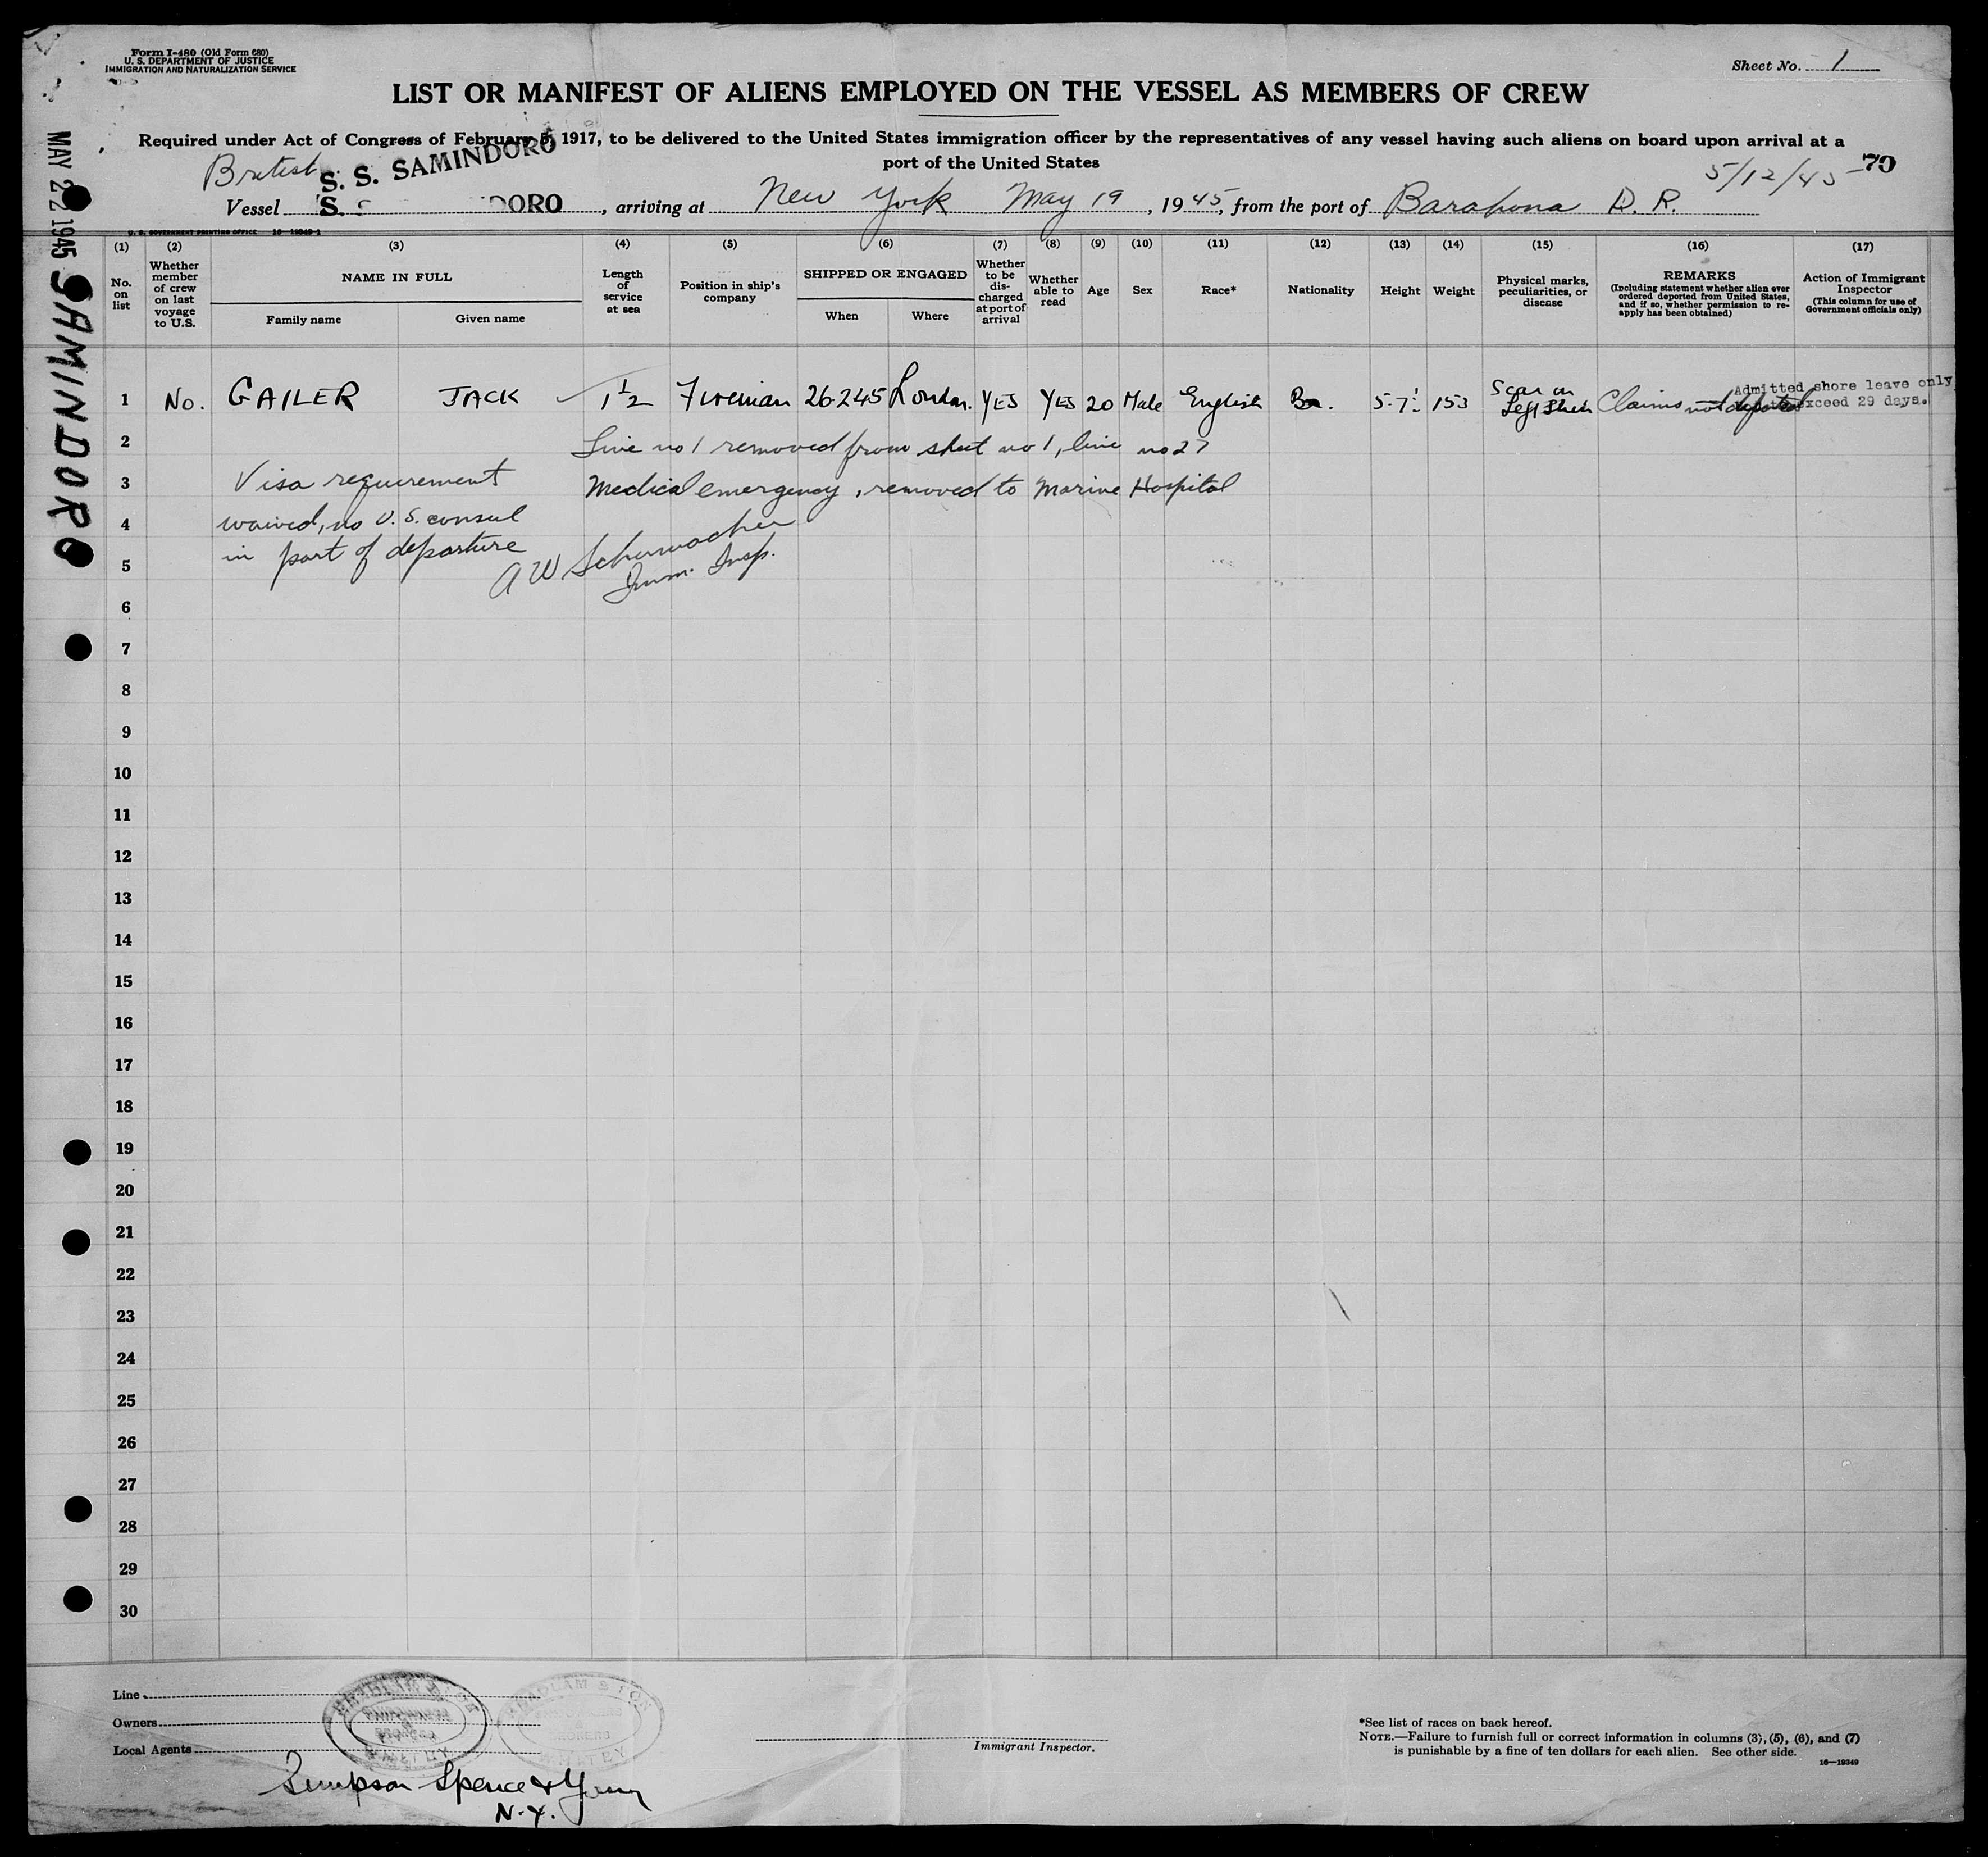 Form I-480 (Old Form 680)
U. S. DEPARTMENT OF JUSTICE
IMMIGRATION AND NATURALIZATION SERVICE
Sheet No. 1
LIST OR MANIFEST OF ALIENS EMPLOYED ON THE VESSEL AS MEMBERS OF CREW
Required under Act of Congress of February 5, 1917, to be delivered to the United States immigration officer by the representatives of any vessel having such aliens on board upon arrival at a
port of the United States
British S. S. SAMINDORO
5/12/45 70
Vessel S. S DORO, arriving at New York May 19, 1945, from the port of Barahona D. R.
U. S. GOVERNMENT PRINTING OFFICE 16-19349-1
MAY 22 1945 SAMINDORO
(1) (2) (3) (4) (5) (6) (7) (8) (9) (10) (11) (12) (13) (14) (15) (16) (17)
No. on list
Whether member of crew on last voyage to U.S.
NAME IN FULL
Family name
Given name
Length of service at sea
Position in ship's company
SHIPPED OR ENGAGED
When
Where
Whether to be discharged at port of arrival
Whether able to read
Age
Sex
Race*
Nationality
Height
Weight
Physical marks, peculiarities, or disease
REMARKS
(Including statement whether alien ever ordered deported from United States, and if so, whether permission to re-apply has been obtained)
Action of Immigrant Inspector
(This column for use of Government officials only)
1 No. GAILER JACK 1½ Fireman 26·2·45 London. YES YES 20 Male English Br. 5-7" 153 Scar on Left Shin Claims not deported Admitted shore leave only exceed 29 days.
2 Line no 1 removed from sheet no 1, line no 27
3 Visa requirement Medical emergency, removed to Marine Hospital
4 waived, no U. S. consul
5 in port of departure A W Schumacher
Imm. Insp.
6
7
8
9
10
11
12
13
14
15
16
17
18
19
20
21
22
23
24
25
26
27
28
29
30
Line
Owners
Local Agents
Simpson Spence & Young
N.Y.
Immigrant Inspector.
*See list of races on back hereof.
NOTE.—Failure to furnish full or correct information in columns (3), (5), (6), and (7)
is punishable by a fine of ten dollars for each alien. See other side.
16—19349